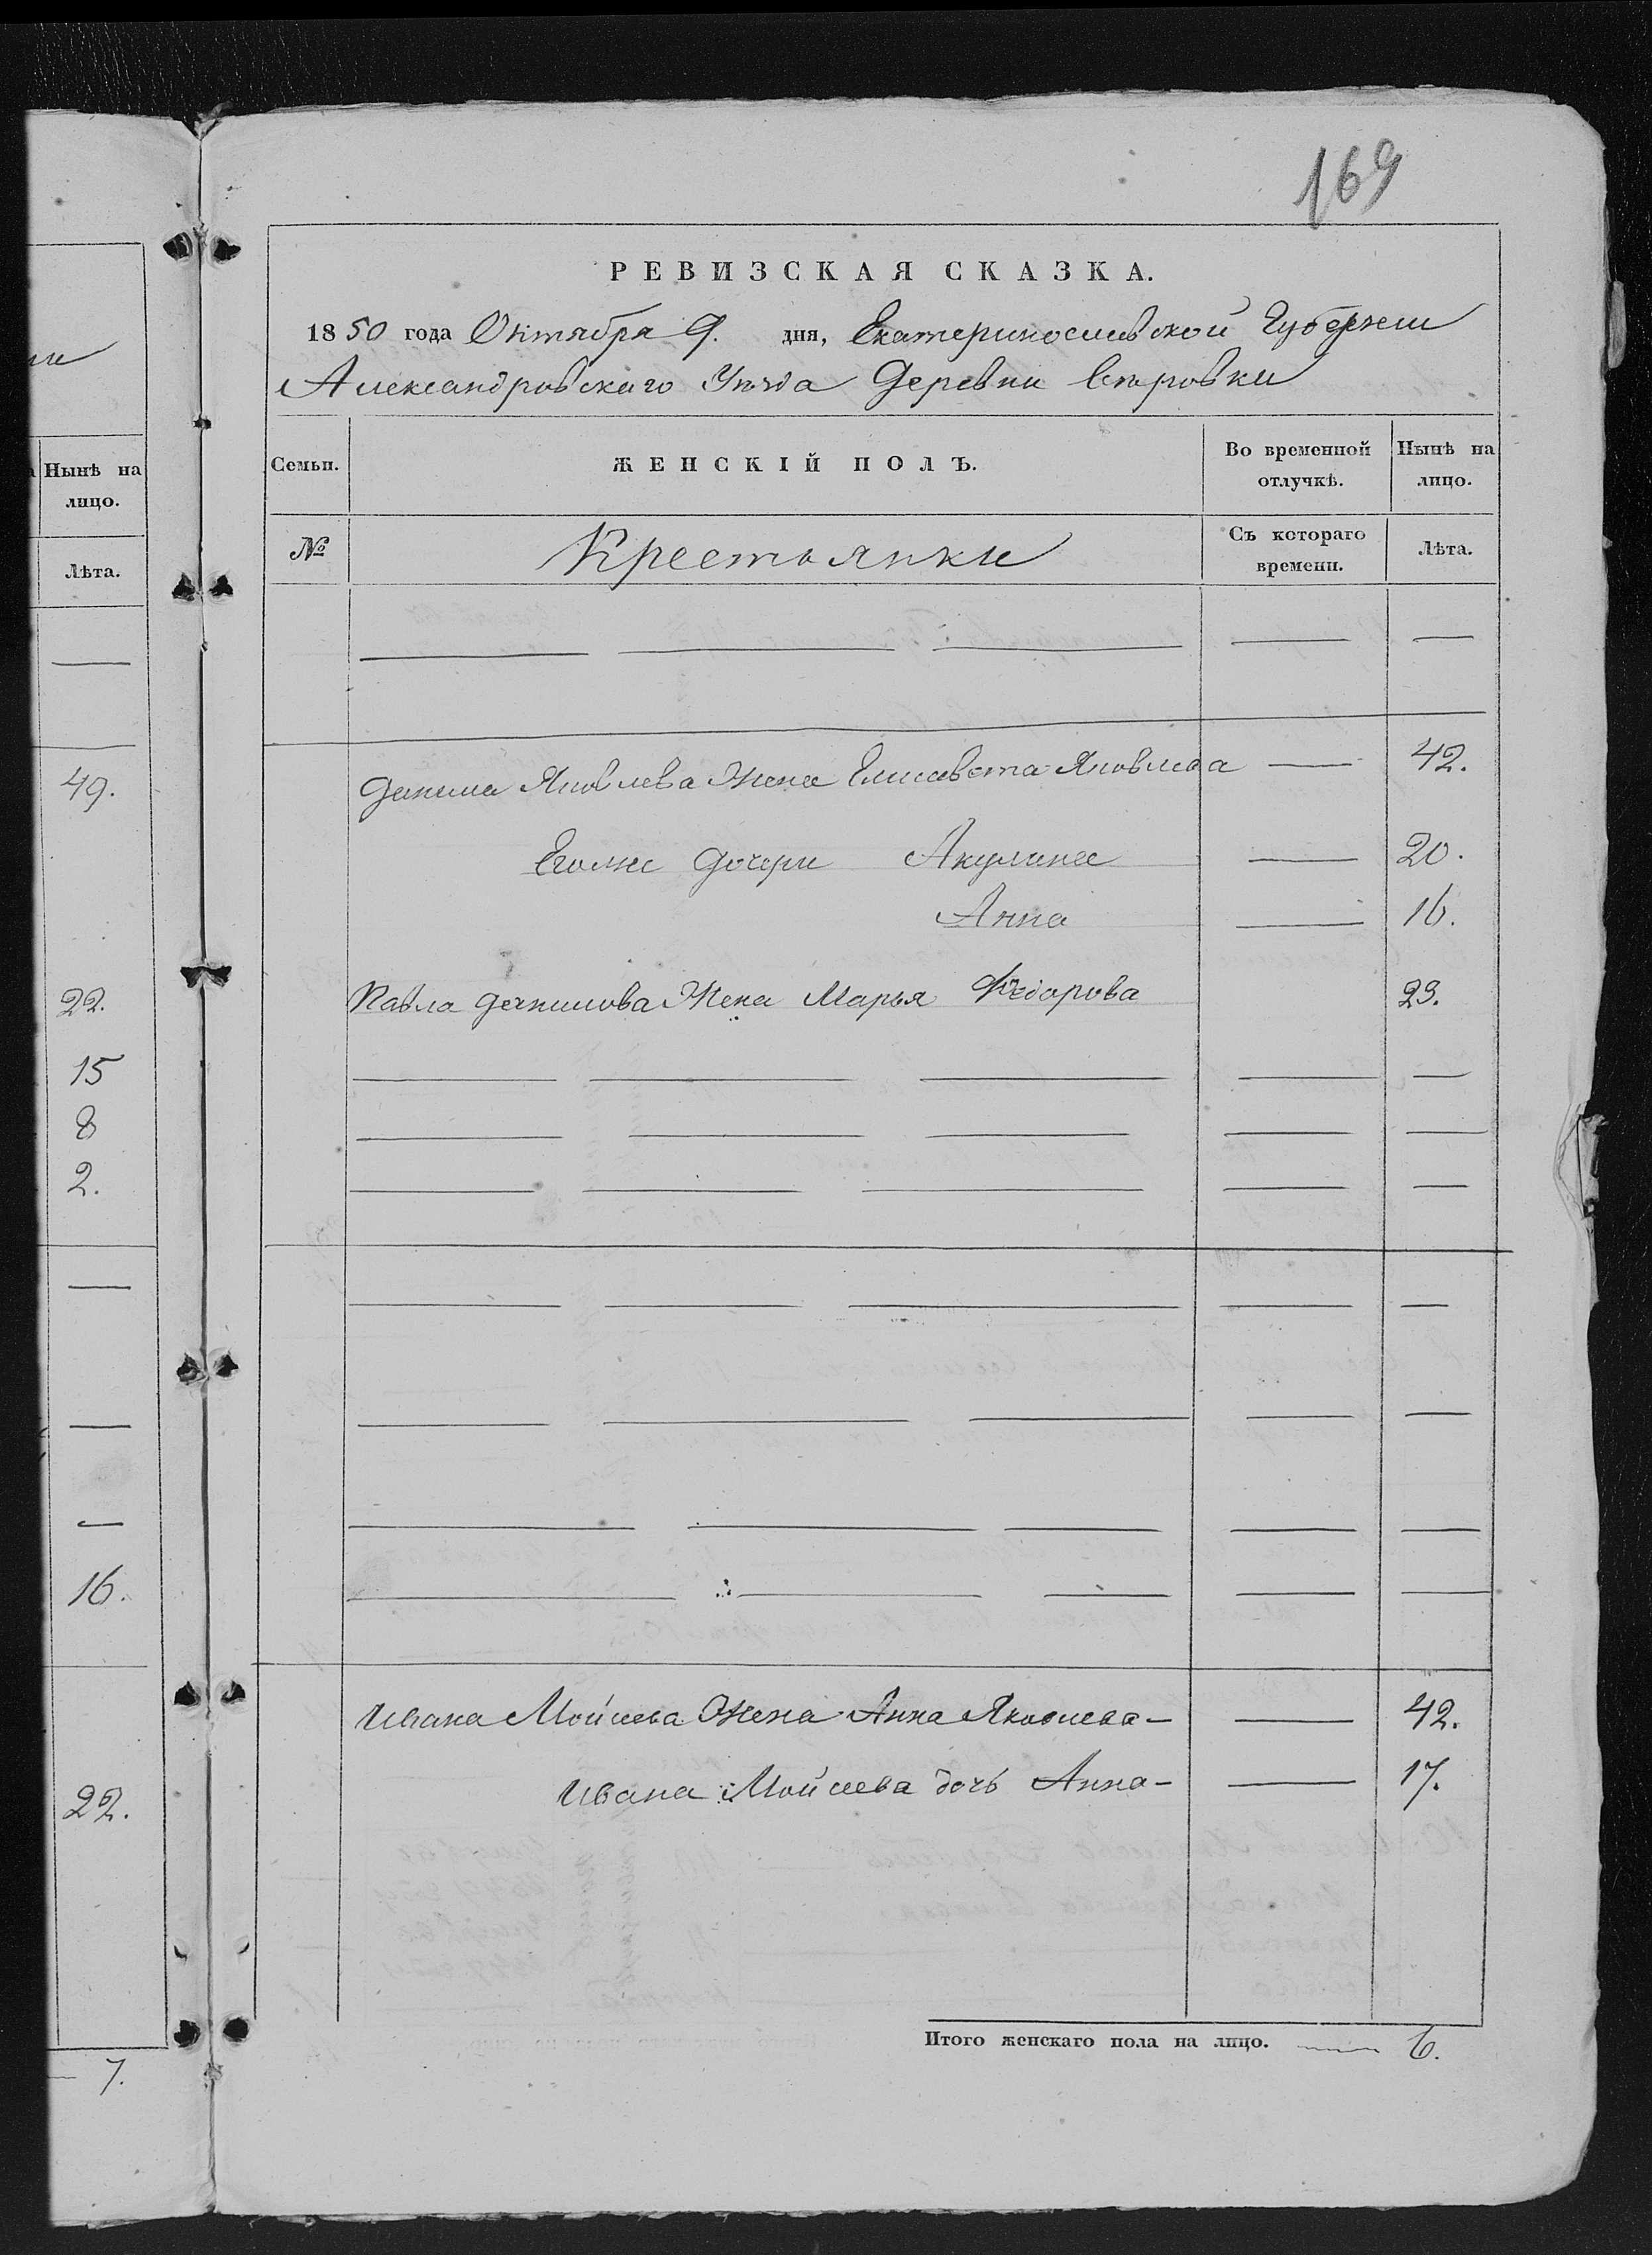 169
РЕВИЗСКАЯ СКАЗКА.
1850 года Октября 9. дня, Екатеринославской Губернии
Александровскаго Уѣзда Деревни
Семьи. ЖЕНСКІЙ ПОЛЪ. Во временной отлучкѣ. Нынѣ на лицо.
№ Крестьянки Съ котораго времени. Лѣта.
Данила Яковлева Жена Елисавета Яковлева — 42.
Егоже дочери Акулина — 20.
Анна — 16.
Павла Данилова Жена Марья Федорова 23.
Ивана Мойсеева Жена Анна Яковлева — 42.
Ивана Мойсеева дочь Анна — 17.
Итого женскаго пола на лицо. 6.
Нынѣ на
лицо.
Лѣта.
49.
22.
15
8
2.
16.
22.
7.